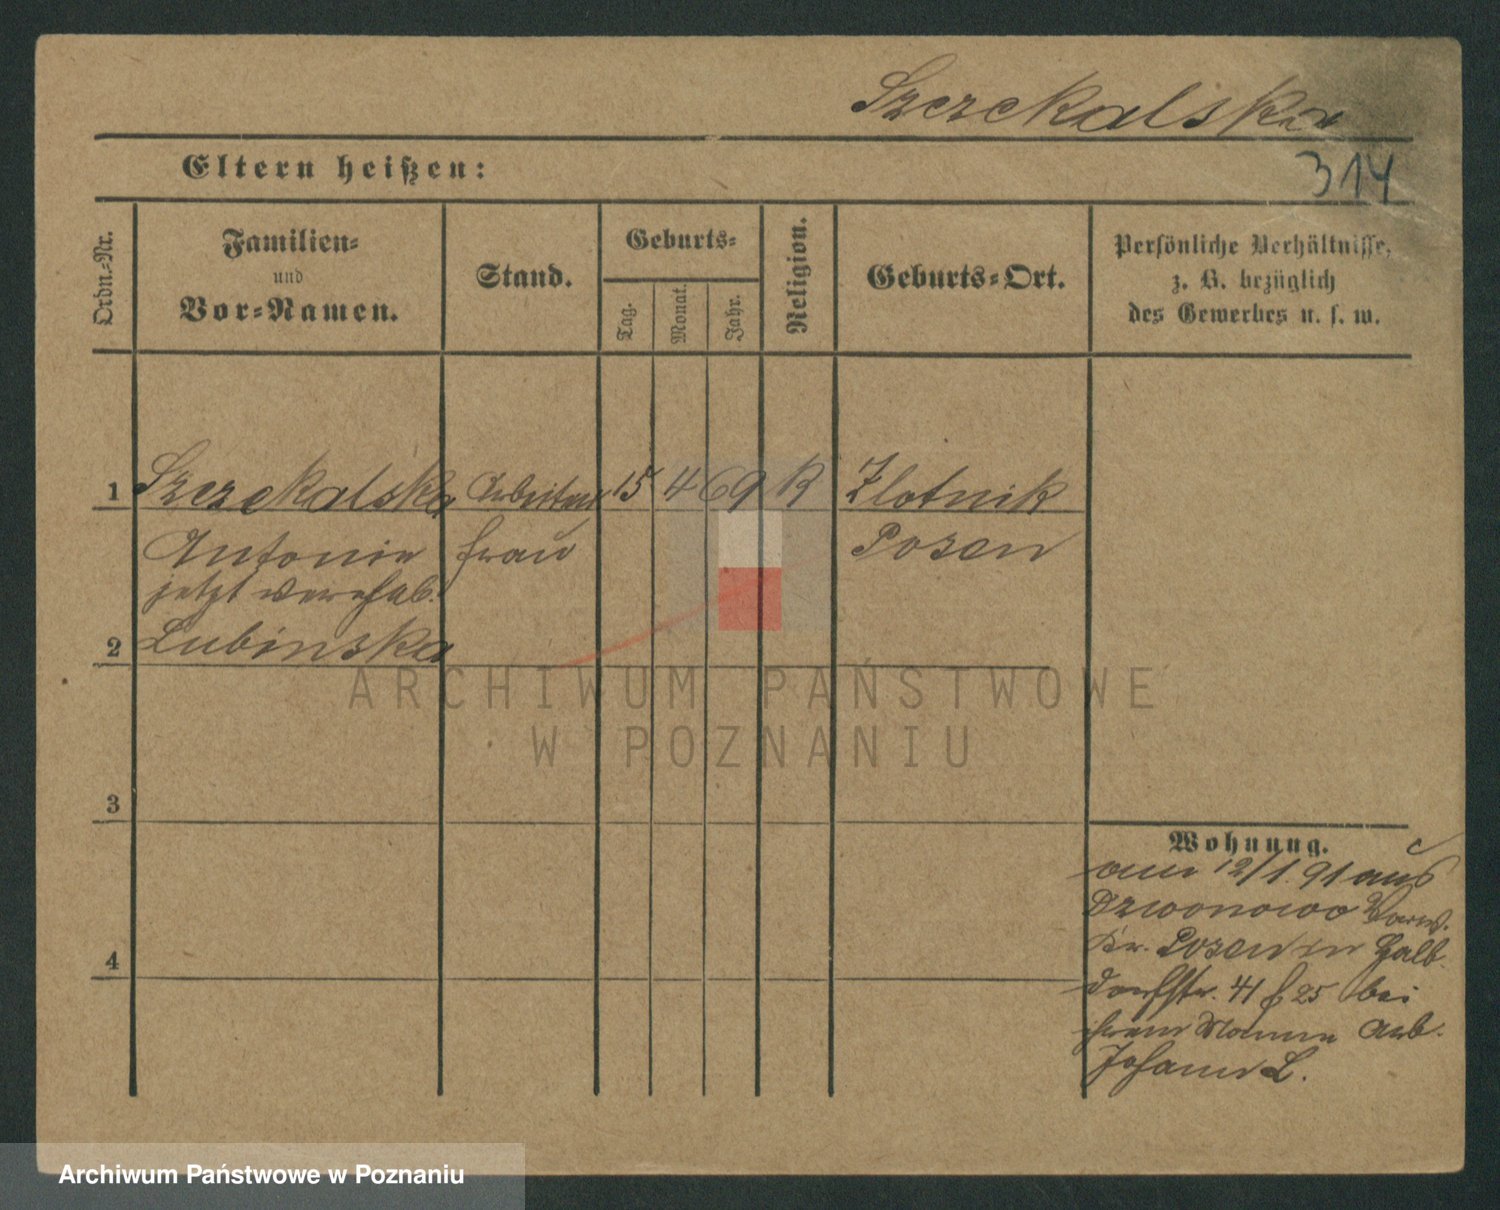 Szczekalska
Eltern heißen:
314
Ordn.-Nr.
Familien-
und
Vor-Namen.
Stand.
Geburts-
Tag.
Monat.
Jahr.
Religion.
Geburts-Ort.
Persönliche Verhältnisse,
z. B. bezüglich
des Gewerbes u. s. w.
1 Szczekalska Arbeiter 15 4 69 K Zlotnik
Antonie frau Posen
jetzt vereh.
2 Lubinska
ARCHIWUM PAŃSTWOWE
W POZNANIU
3
Wohnung.
am 12/1. 91 aus
Dzwonowo
Kr. Posen in Halb-
4
dorfstr. 41 f 25 bei
ihrem Manne Arb.
Johann L.
Archiwum Państwowe w Poznaniu